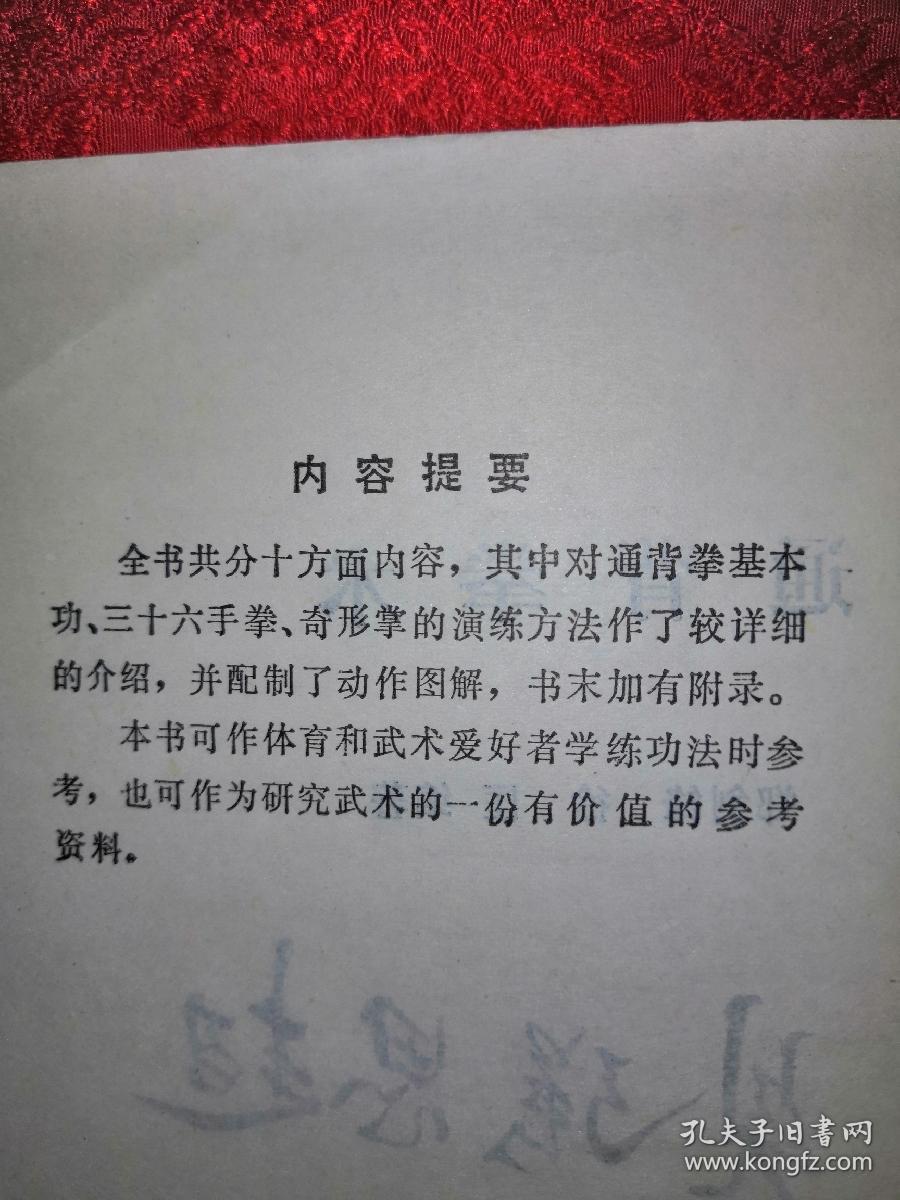 内容提要
全书共分十方面内容，其中对通背拳基本
功、三十六手拳、奇形掌的演练方法作了较详细
的介绍，并配制了动作图解，书末加有附录。
本书可作体育和武术爱好者学练功法时参
考，也可作为研究武术的一份有价值的参考
资料。
孔夫子旧书网
www.kongfz.com